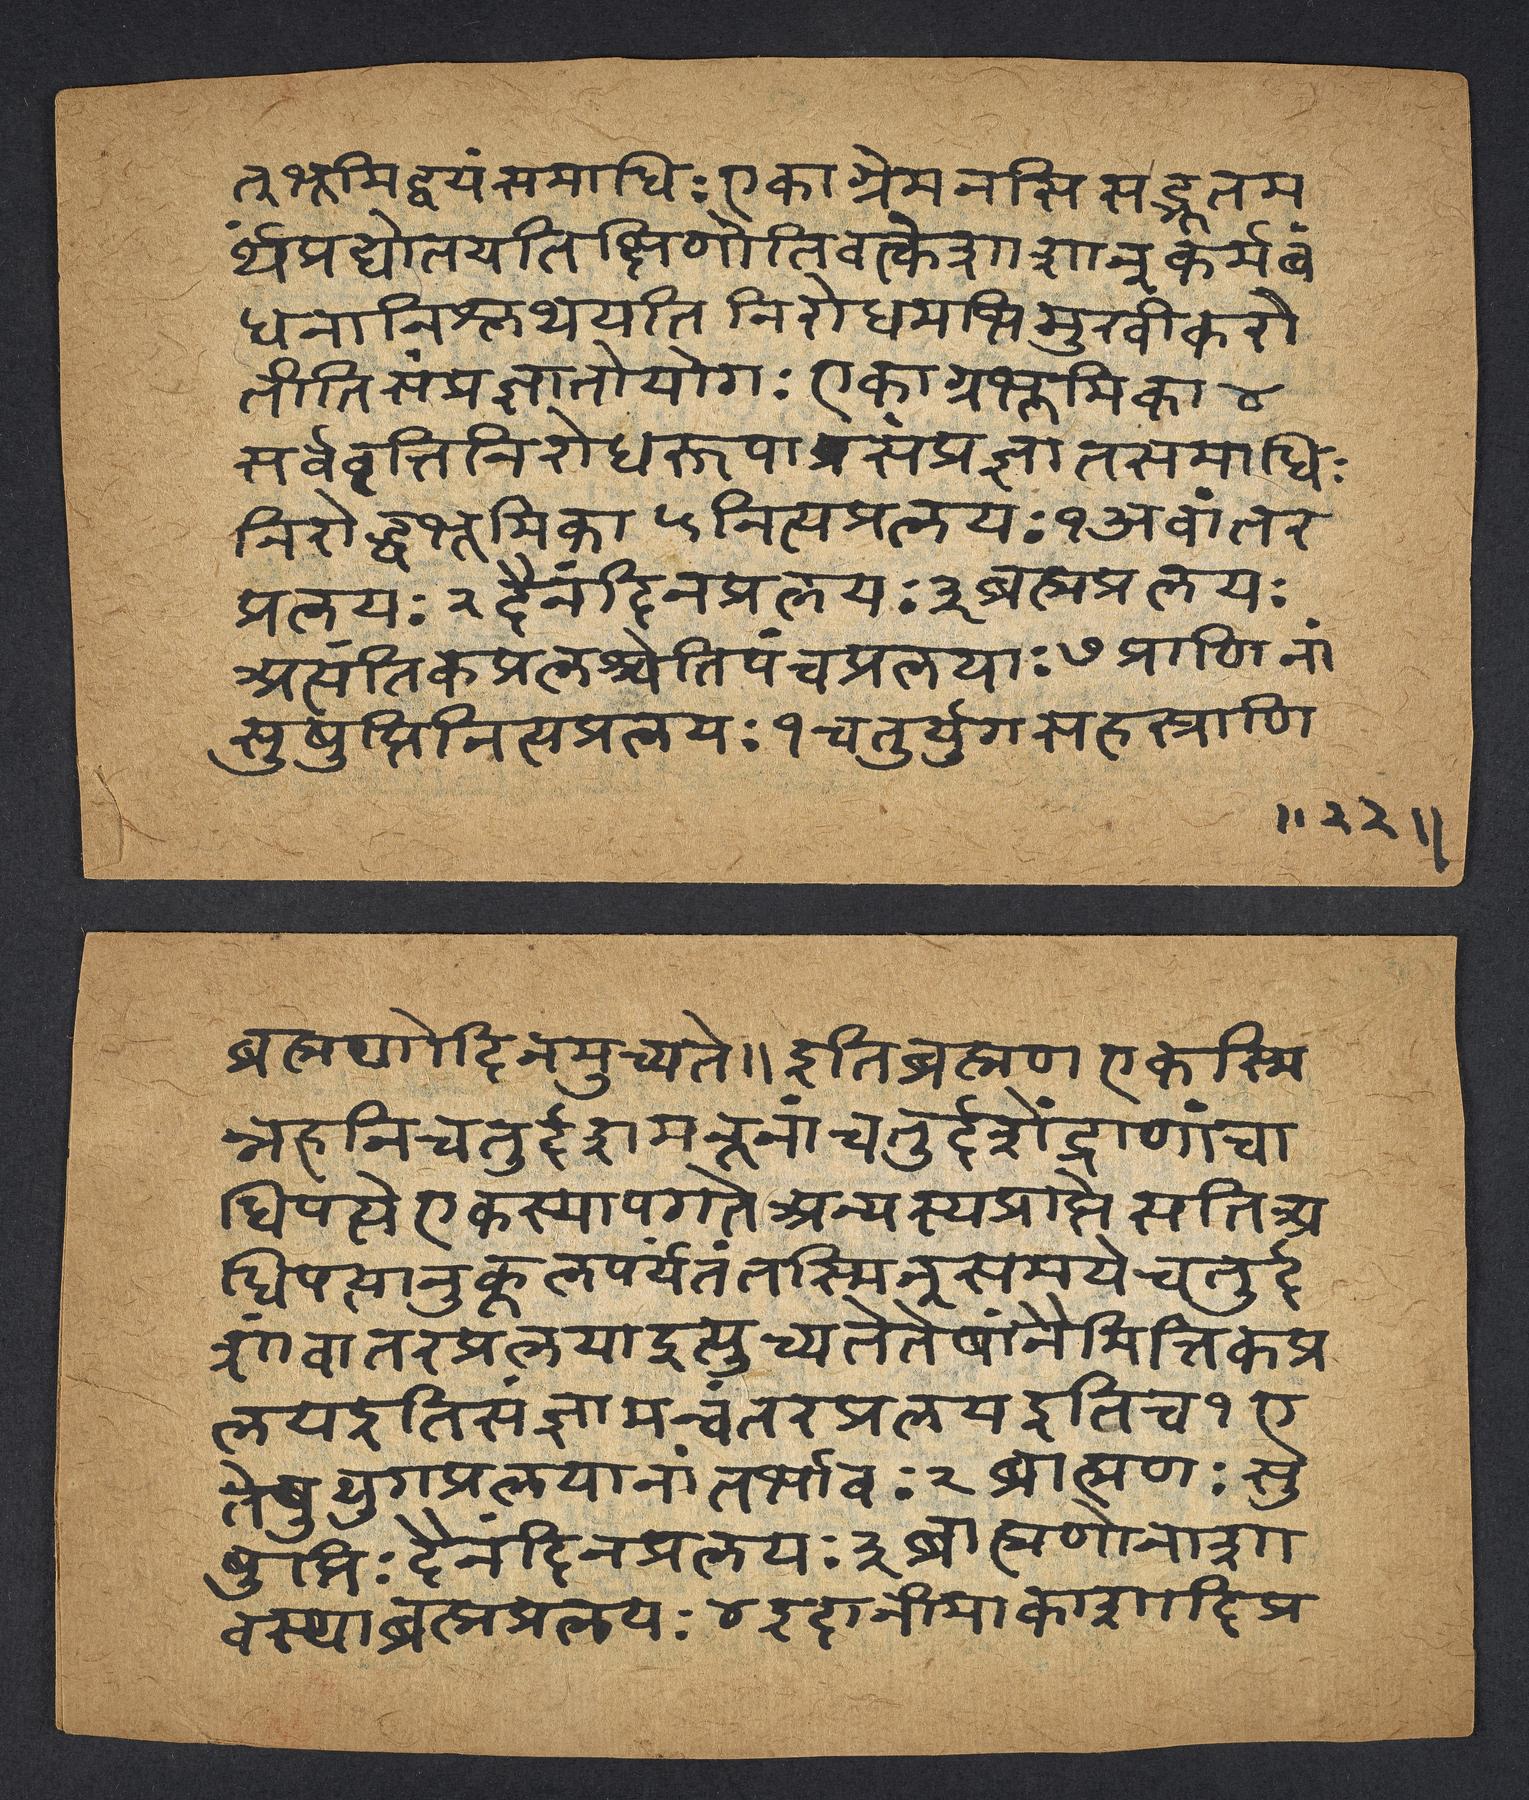 त्भूमिद्वयंसमाधिः एकाग्रेमनसिसद्भूतम
र्थंप्रद्योतयतिक्षिणोतिवत्केशाशान्कर्मबं
धनानिश्लथयति निरोधमभिमुखीकरो
तीतिसंप्रज्ञातोयोगः एकाग्रभूमिका ४
सर्ववृत्तिनिरोधरूपा असंप्रज्ञातसमाधिः
निरोद्धभूमिका ५ नित्यप्रलयः १ अवांतर
प्रलयः २ दैनंदिनप्रलयः ३ ब्रह्मप्रलयः
अत्यंतिकप्रलश्चेतिपंचप्रलयाः ७ प्राणिनां
सुषुप्तिनित्यप्रलयः १ चतुर्युगसहस्त्राणि
॥ २२ ॥
ब्रह्मणोदिनमुच्यते॥ इतिब्रह्मण एकस्मि
न्नहनिचतुर्द्दशामनूनांचतुर्द्दशेंद्राणांचा
धिपत्ये एकस्यापगते अन्यस्यप्राप्ते सतिअ
धिपत्यानुकूलपर्यंतंतस्मिन्समये चतुर्द्द
शांवातरप्रलयाइत्युच्यतेतेषांनैमित्तिकप्र
लयइतिसंज्ञामन्वंतरप्रलयइतिच १ ए
तेषुयुगप्रलयानांतर्भावः २ ब्राह्मणः सु
षुप्तिः दैनंदिनप्रलयः ३ ब्राह्मणोनाशा
वस्थाब्रह्मप्रलयः ४ इदानीमाकाशादिप्र